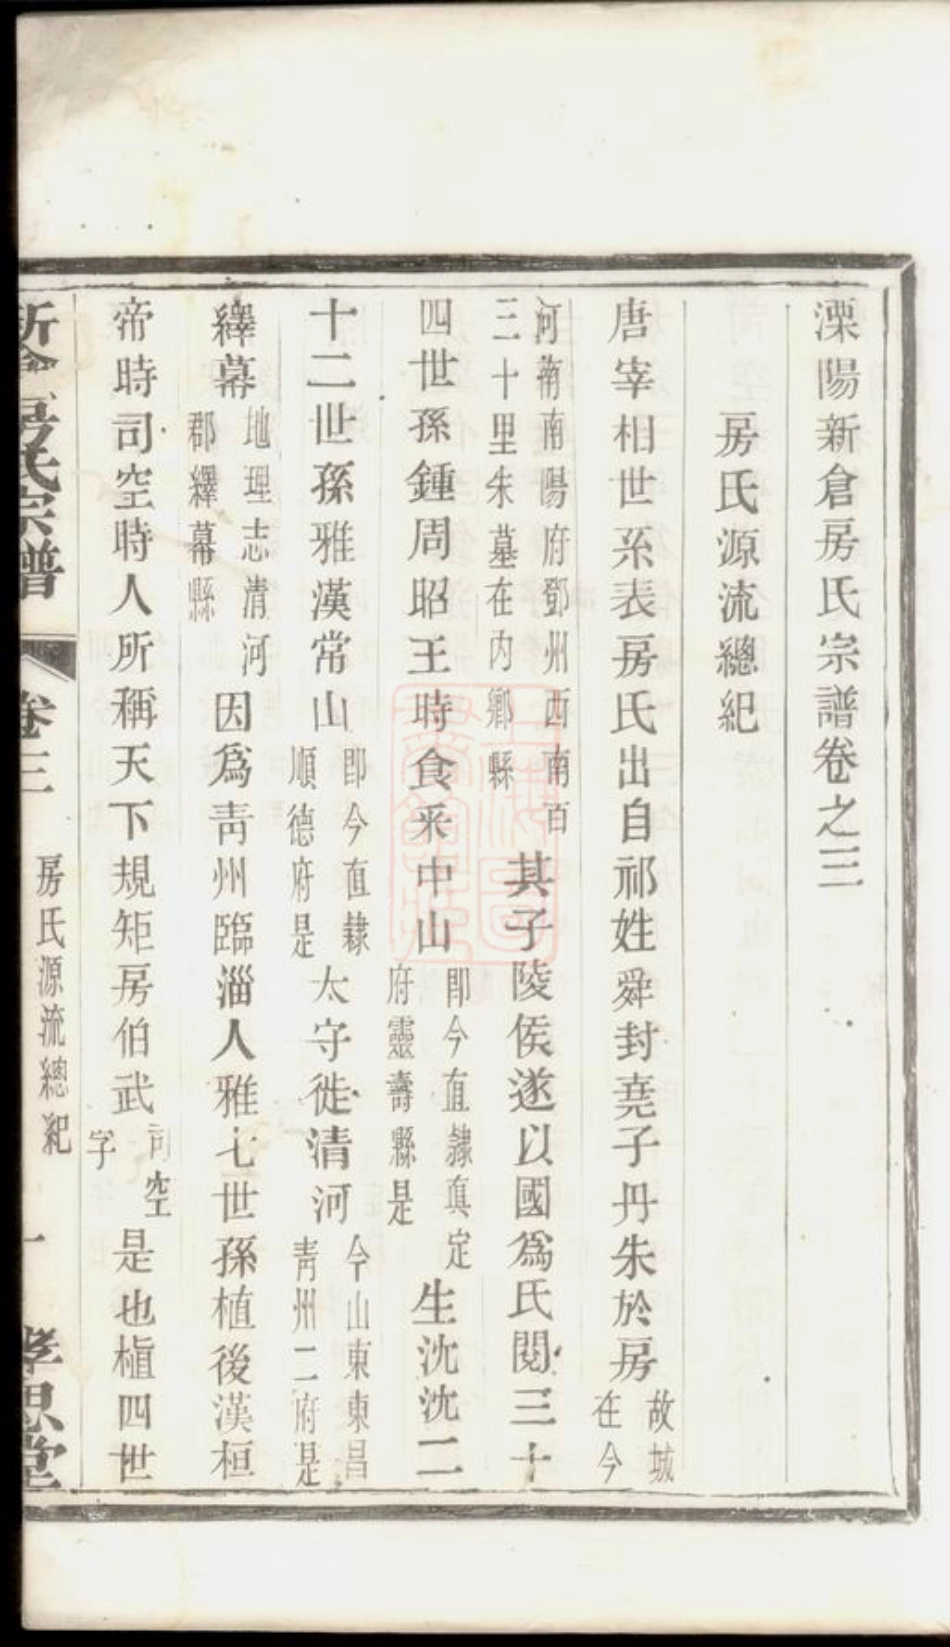 溧陽新倉房氏宗譜卷之三
房氏源流總紀
唐宰相世系表房氏出自祁姓舜封堯子丹朱於房故城在今
河南南陽府鄧州西南百三十里朱墓在内鄉縣其子陵侯遂以國爲氏閱三十
四世孫鍾周昭王時食釆中山即今直隸真定府靈壽縣是生沈沈二
十二世孫雅漢常山即今直隸順德府是太守徙清河今山東東昌青州二府是
繹幕地理志清河郡繹幕縣因爲青州臨淄人雅七世孫植後漢桓
帝時司空時人所稱天下規矩房伯武司空字是也植四世
新倉房氏宗譜
卷三
房氏源流總紀
一
孝思堂